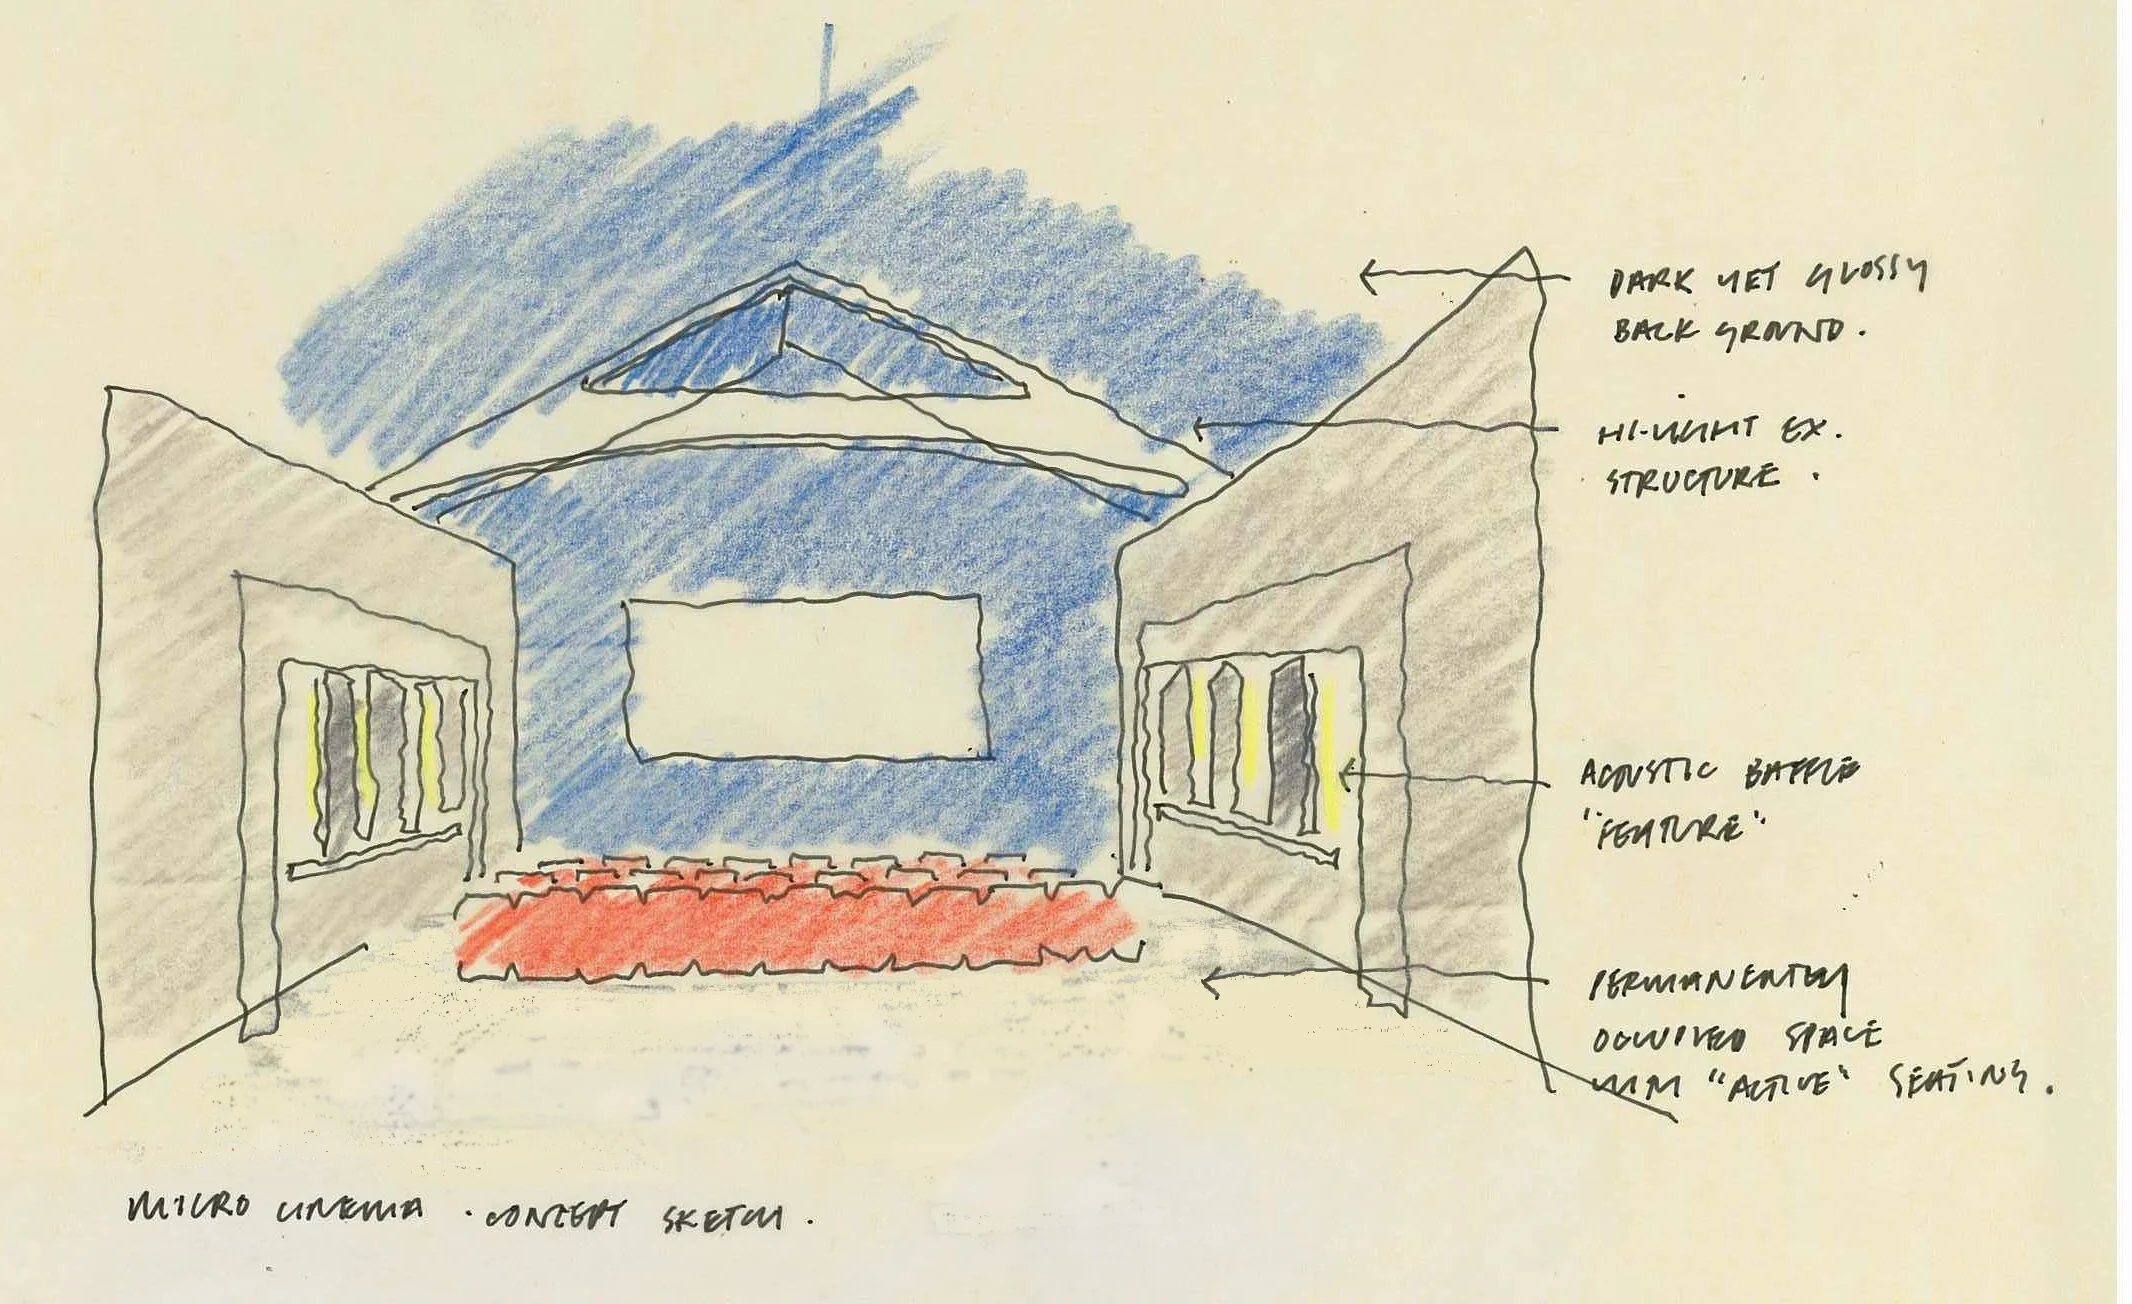 DARK YET GLOSSY
BACK GROUND.
HI-LIGHT EX.
STRUCTURE.
ACOUSTIC BAFFLE
"FEATURE"
PERMANENTLY
OCCUPIED SPACE
WITH "ACTIVE" SEATING.
MICRO CINEMA . CONCEPT SKETCH.